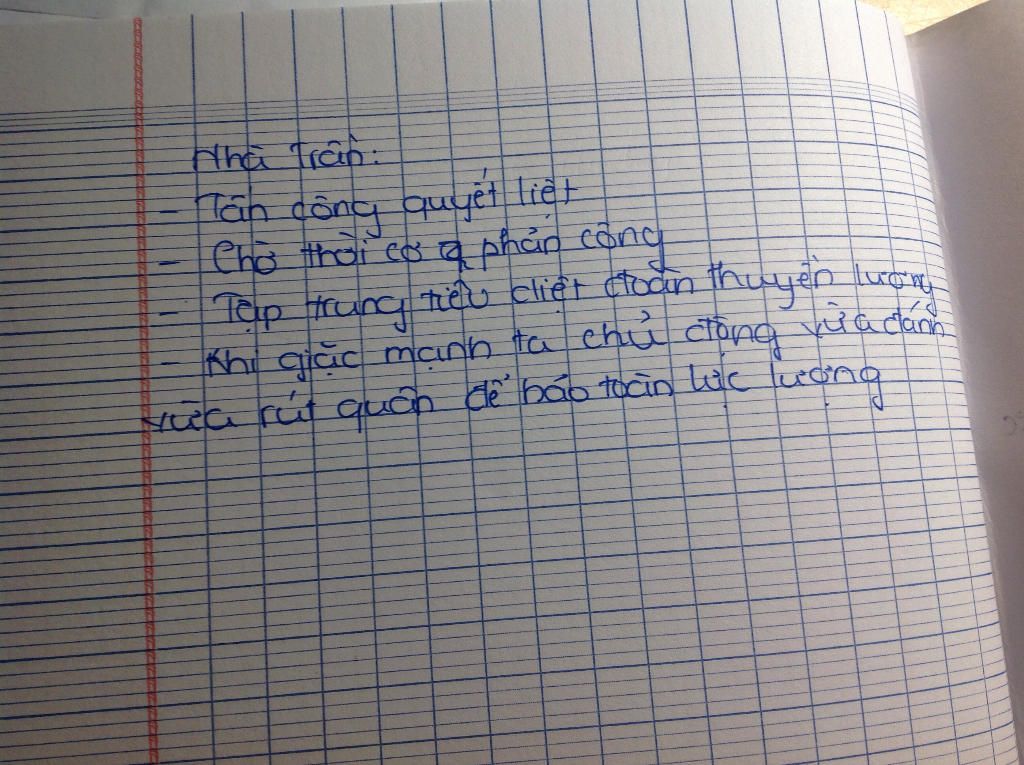 Nhà Trần:
- Tấn công quyết liệt
- Chờ thời cơ phản công
- Tập trung tiêu diệt đoàn thuyền lương
- Khi giặc mạnh ta chủ động vừa đánh
vừa rút quân để bảo toàn lực lượng